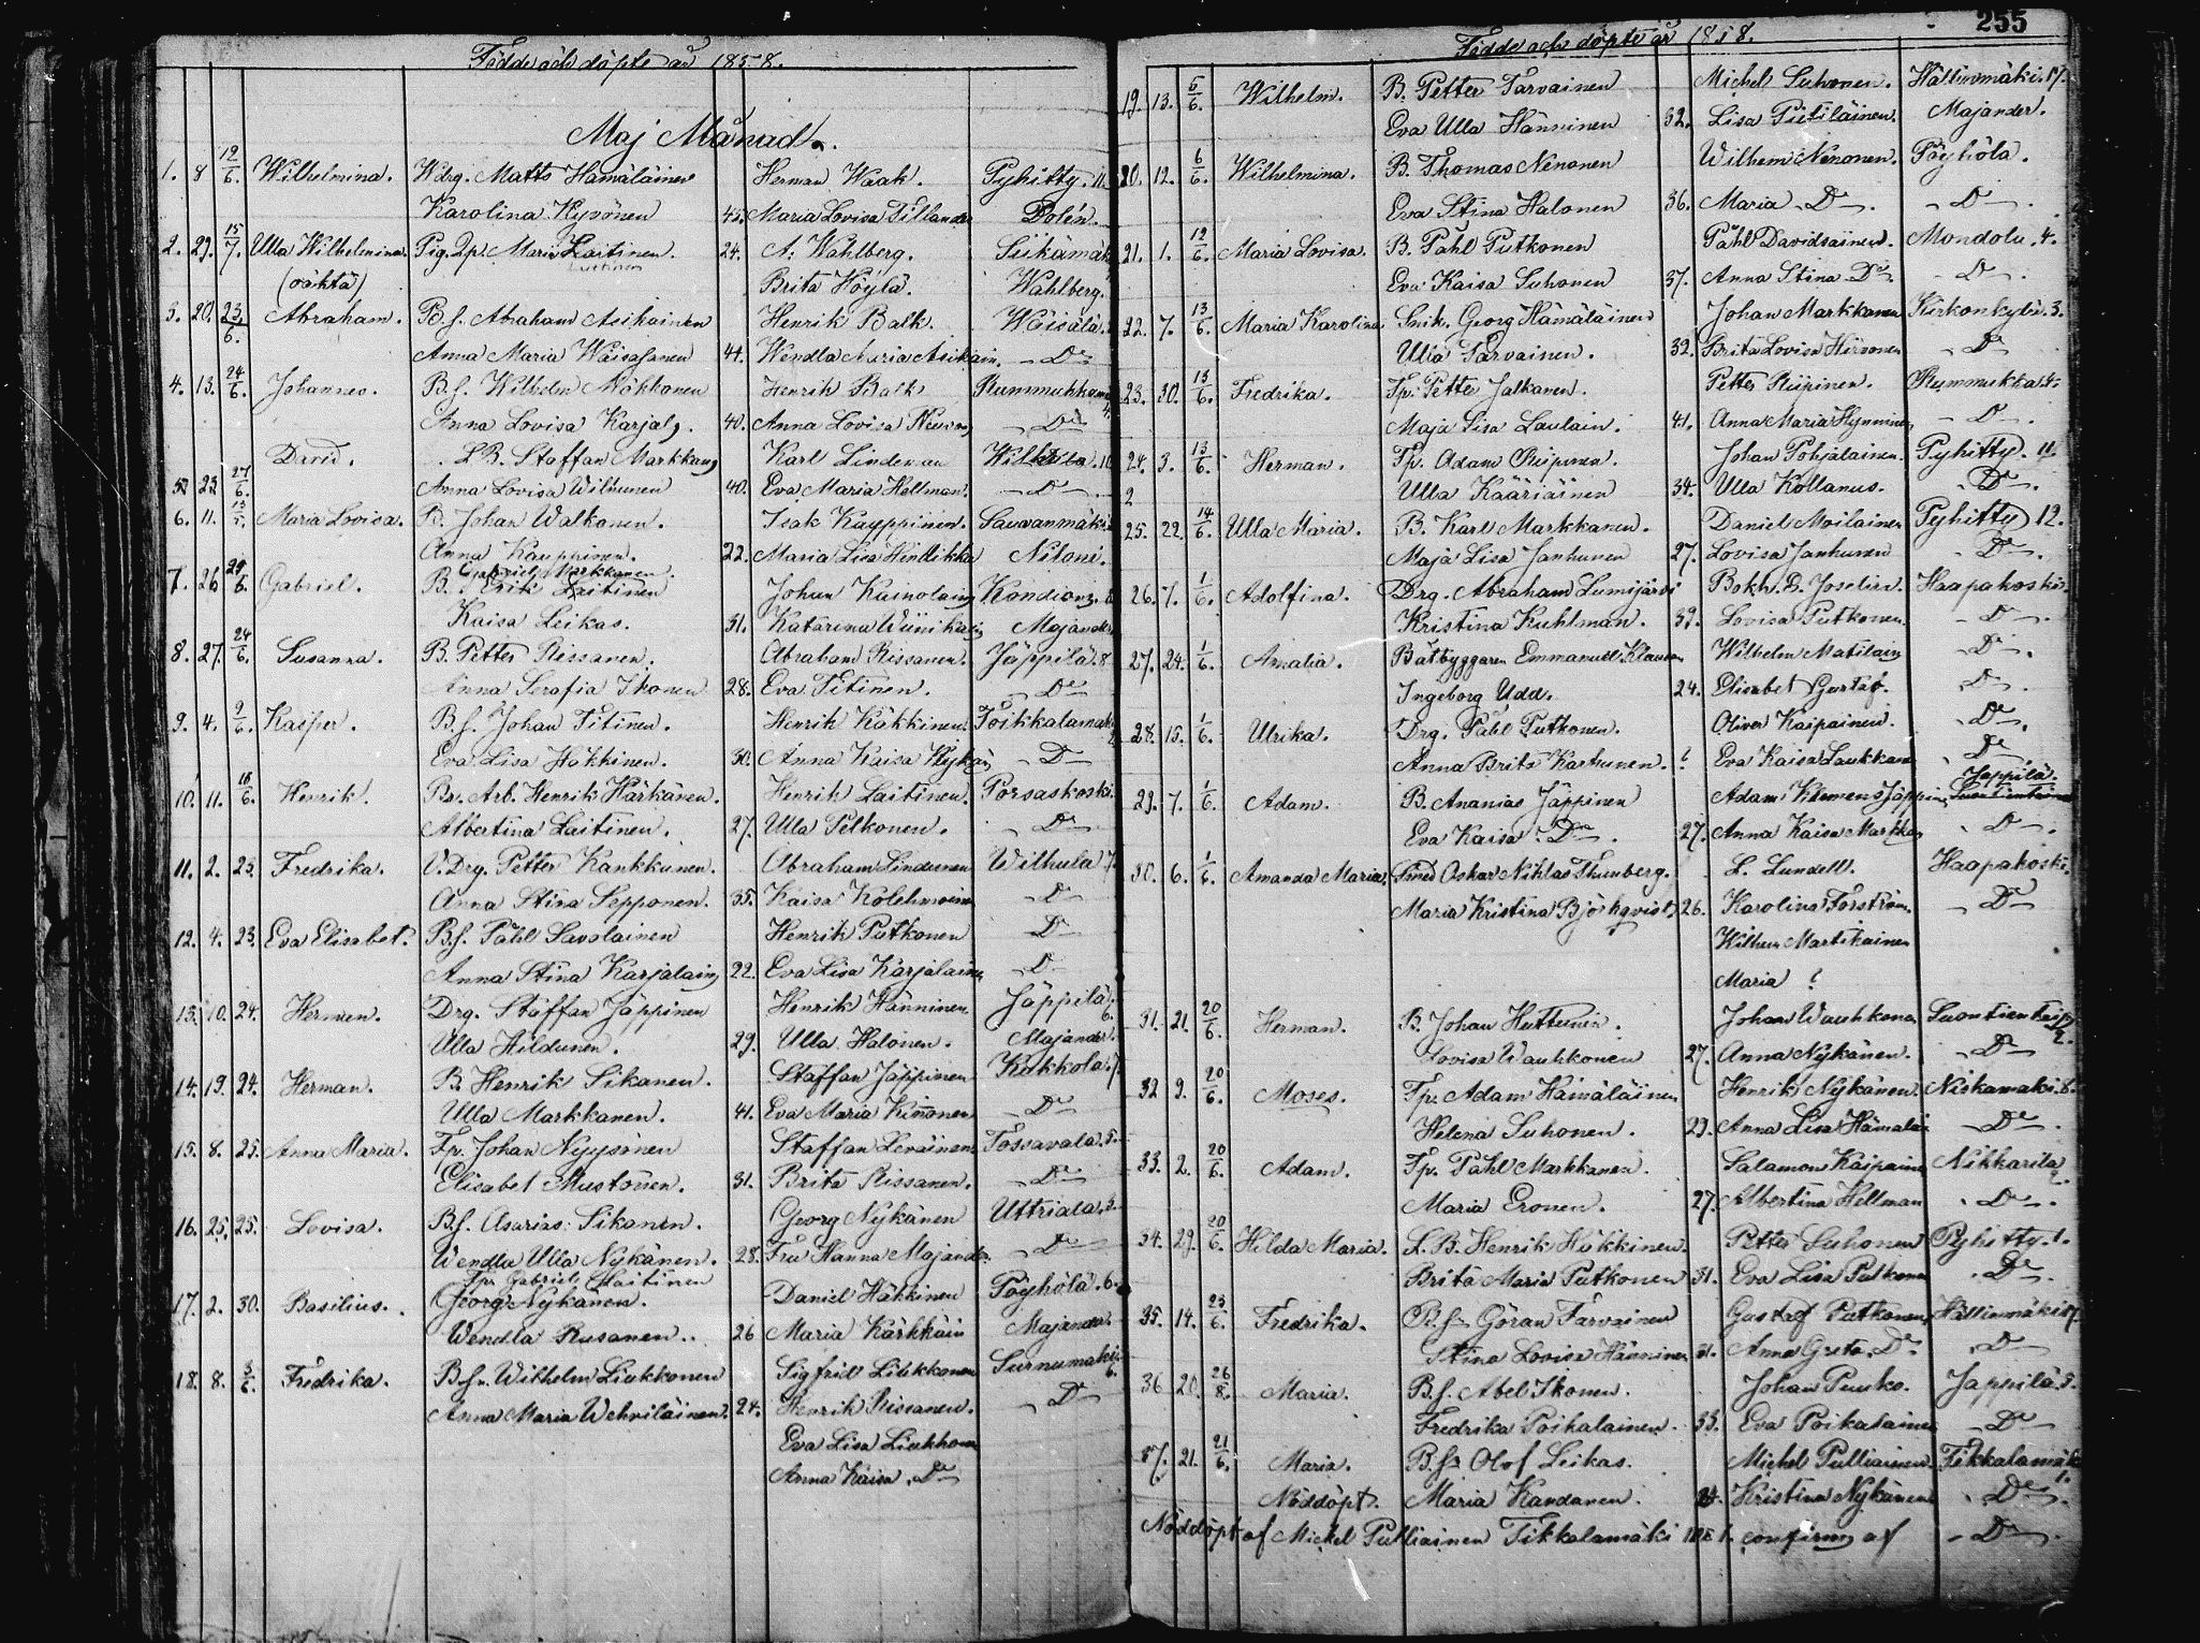 Födde och döpte år 1858.
Maj Månad.
1. 8 12/6. Wilhelmina. Wdrg. Matts Hämäläinen Herman Waak. Pyhitty. 11.
Karolina Kyrönen 45. Maria Lovisa Tillander Dolén.
2. 29. 15/7. Ulla Wilhelmina. Pig. Maria Laitinen. 24. A. Wahlberg. Siikämäk
(oäkta) Brita Höylä. Wahlberg.
3. 20. 23/6. Abraham. B.f. Abraham Asikainen Henrik Balk. Wäisälä.
Anna Maria Wäisasanen 44. Wendla Maria Asikain. D:o
4. 13. 24/6. Johannes. B.f. Wilhelm Nökkonen Henrik Balk 4.
Anna Lovisa Karjal. 40. Anna Lovisa D:o
David. L.B. Staffan Markkan Karl Lindeman Wilhula. 10
5. 23 27/6. Anna Lovisa Wilhunen 40. Eva Maria Hellman. D:o
6. 11. Maria Lovisa. B. Johan Walkonen. Isak Kauppinen. Sauvanmäki
Anna Kauppinen. 22. Maria Lisa Hindikka Niloni.
Gabriel Markkanen.
7. 26 29/6. Gabriel. B. Erik Laitinen Johan Kainolain 
Kaisa Leikas. 31. Katarina Wiinikain Majander
8. 27. 24/6. Susanna. B. Petter Rissanen. Abraham Rissanen. Jäppilä. 8.
Anna Serafia Ikonen 28. Eva Titinen. D:o
9. 4. 9/6. Kasper. B.f. Johan Titinen. Henrik Häkkinen. Toikkalamäk
Eva Lisa Häkkinen. 30. Anna Kaisa Nykän D:o
10. 11. 16/6. Henrik. Br. Arb. Henrik Härkänen. Henrik Laitinen. Porsaskoski.
Albertina Laitinen. 27. Ulla Pelkonen. D:o
11. 2. 23. Fredrika. O. Drg. Petter Kankkunen. Abraham Lindunen Wilhula 7.
Anna Stina Sepponen. 35. Kaisa Kolehmainen D:o
12. 4. 23. Eva Elisabet. B.f. Påhl Savolainen Henrik Putkonen D:o
Anna Stina Karjalain 22. Eva Lisa Karjalainen D:o
13. 10. 24. Herman. Drg. Staffan Jäppinen Henrik Hänninen Jäppilä 6.
Ulla Hildunen. 29. Ulla Halonen. Majander.
14. 19. 24. Herman. B. Henrik Sikanen. Staffan Jäppinen Kokkola. 7.
Ulla Markkanen. 41. Eva Maria Kinonen D:o
15. 8. 25. Anna Maria. Tp. Johan Nyyssönen Staffan Leväinen Tossavala. 5.
Elisabet Mustonen. 31. Brita Rissanen. D:o
16. 25. 25. Lovisa. B.f. Asarias Sikanen. Georg Nykänen Uttriala. 3.
Wendla Ulla Nykänen. 28. Fru Hanna Majander. D:o
Tp. Gabriel Laitinen
17. 2. 30. Basilius. Georg Nykänen. Daniel Häkkinen Pöyhölä. 6.
Wendla Rusanen. 26 Maria Kärkkäin Majander.
18. 8. 3/6. Fredrika. B.f. Wilhelm Liukkonen Sigfrid Liukkonen Surnumäki 6.
Anna Maria Wehviläinen. 24. Henrik Rissanen. D:o
Eva Lisa Liukkonen
Anna Kaisa D:o
255
Födde och döpte år 1858.
19. 13. 5/6. Wilhelm. B. Petter Tarvainen Michel Suhonen. Hällinmäki. 17.
Eva Ulla Hänninen 32. Lisa Pietiläinen. Majander.
20. 12. 6/6. Wilhelmina. B. Thomas Nenonen Wilhem Nenonen. Pöyhölä.
Eva Stina Halonen 36. Maria D:o D:o
21. 1. 12/6. Maria Lovisa. B. Påhl Putkonen Påhl Davidsainen. Mondola. 4.
Eva Kaisa Suhonen 37. Anna Stina D:o D:o
22. 7. 13/6. Maria Karolina Snik. Georg Hämäläinen Johan Markkanen Kirkonkylä. 3.
Ulla Tarvainen. 32. Brita Lovisa Hirvonen D:o
23. 30. 13/6. Fredrika. Tp. Petter Jalkanen. Petter Riipinen. Rummukka. 4.
Maja Lisa Laulain. 41. Anna Maria Hynninen D:o
24. 3. 13/6. Herman. Tp. Adam Riipinen. Johan Pohjalainen. Pyhitty. 11.
2 Ulla Kääriäinen 34. Ulla Kollanus. D:o
25. 22. 14/6. Ulla Maria. B. Karl Markkanen. Daniel Moilainen Pyhitty 12.
Maja Lisa Janhunen 27. Lovisa Janhunen D:o
26. 7. 1/6. Adolfina. Drg. Abraham Lumijärvi Bokh. B. Joselin. Haapakoski.
Kristina Kuhlman. 39. Lovisa Putkonen D:o
27. 24. 1/6. Amalia. Båtbyggaren Emmanuel Klausen Wilhelm Matilain D:o
Ingeborg Udd. 24. Elisabet Gustaf. D:o
28. 15. 1/6. Ulrika. Drg. Påhl Putkonen. Oliver Kaipainen. D:o
Anna Brita Karhunen. ? Eva Kaisa Laukkan D:o
29. 7. 1/6. Adam. B. Ananias Jäppinen Adam Klemens Jäppinen Jäppilä. Suontientaipa
Eva Kaisa D:o 27. Anna Kaisa Markka D:o
30. 6. 1/6. Amanda Maria. Smed Oskar Niklas Thunberg. L. Lundell. Haapakoski.
Maria Kristina Björkqvist 26. Karolina Forström. D:o
Wilhem Martikainen
Maria ?
31. 21. 20/6. Herman. B. Johan Huttunen. Johan Wauhkonen Suontientaip 2.
Lovisa Wauhkonen 27. Anna Nykänen. D:o
32 9. 20/6. Moses. Tp. Adam Hämäläinen Henrik Nykänen. Niskamäki. 8.
Helena Suhonen. 29. Anna Lisa Hämäläi D:o
33. 2. 20/6. Adam. Tp. Påhl Markkanen. Salamon Kaipaine Nikkarila 2.
Maria Eronen. 27. Albertina Hellman D:o
34. 29. 20/6. Hilda Maria. L.B. Henrik Häkkinen. Petter Suhonen Pyhitty. 1.
Brita Maria Putkonen 31. Eva Lisa Putkonen D:o
35. 14. 23/6. Fredrika. B.f. Göran Tarvainen Gustaf Putkonen, Hällinmäki 17.
Stina Lovisa Hänninen 21. Anna Greta D:o D:o
36 20. 26/8. Maria. B.f. Abel Ikonen. Johan Puuko. Jappilä.
Fredrika Poikalainen 33. Eva Poikalainen D:o
37. 21. 21/6. Maria. B.f. Olof Leikas. Michel Pulliainen Tikkalamäki 1.
Nöddöpt. Maria Kandanen. 24. Kristina Nykänen D:o
Nöddöpt af Michel Pulliainen Tikkalamäki N:o 1. confirm af D:o